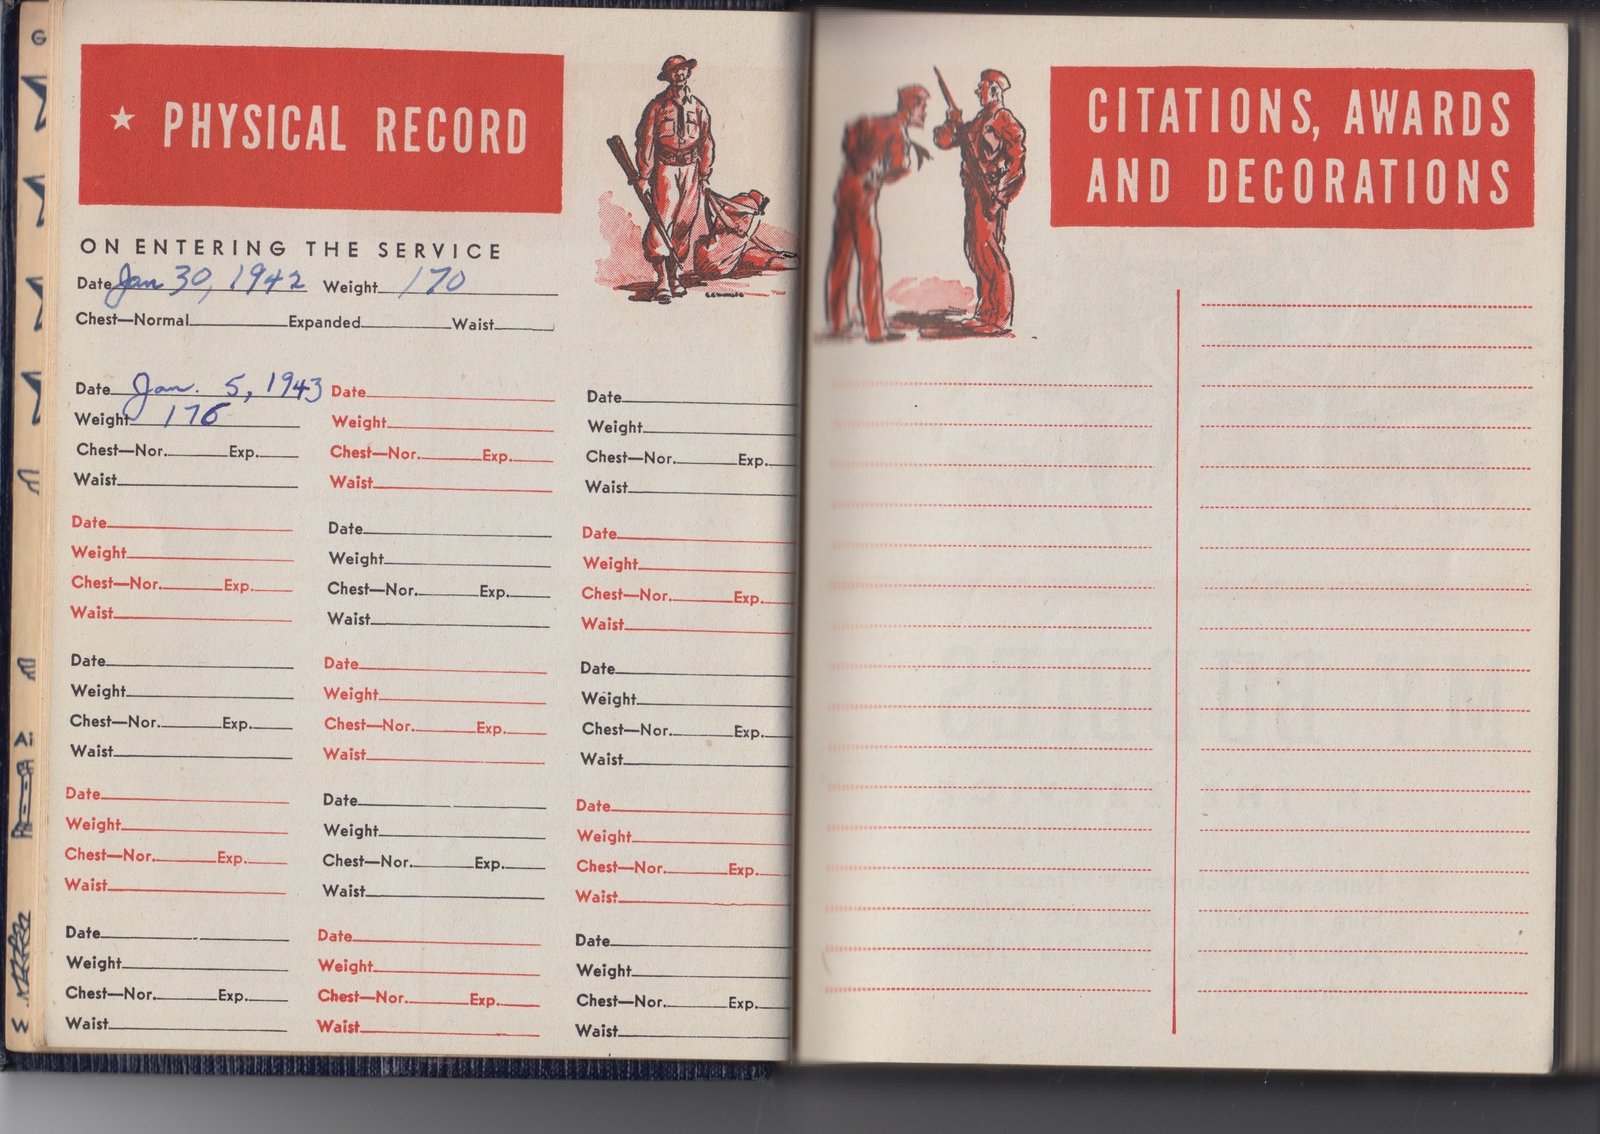 ★ PHYSICAL RECORD
ON ENTERING THE SERVICE
Date Jan 30, 1942 Weight 170
Chest—Normal Expanded Waist
Date Jan. 5, 1943 Date Date
Weight 176 Weight Weight
Chest—Nor. Exp. Chest—Nor. Exp. Chest—Nor. Exp.
Waist Waist Waist
Date Date Date
Weight Weight Weight
Chest—Nor. Exp. Chest—Nor. Exp. Chest—Nor. Exp.
Waist Waist Waist
Date Date Date
Weight Weight Weight
Chest—Nor. Exp. Chest—Nor. Exp. Chest—Nor. Exp.
Waist Waist Waist
Date Date Date
Weight Weight Weight
Chest—Nor. Exp. Chest—Nor. Exp. Chest—Nor. Exp.
Waist Waist Waist
Date Date Date
Weight Weight Weight
Chest—Nor. Exp. Chest—Nor. Exp. Chest—Nor. Exp.
Waist Waist Waist
CITATIONS, AWARDS
AND DECORATIONS